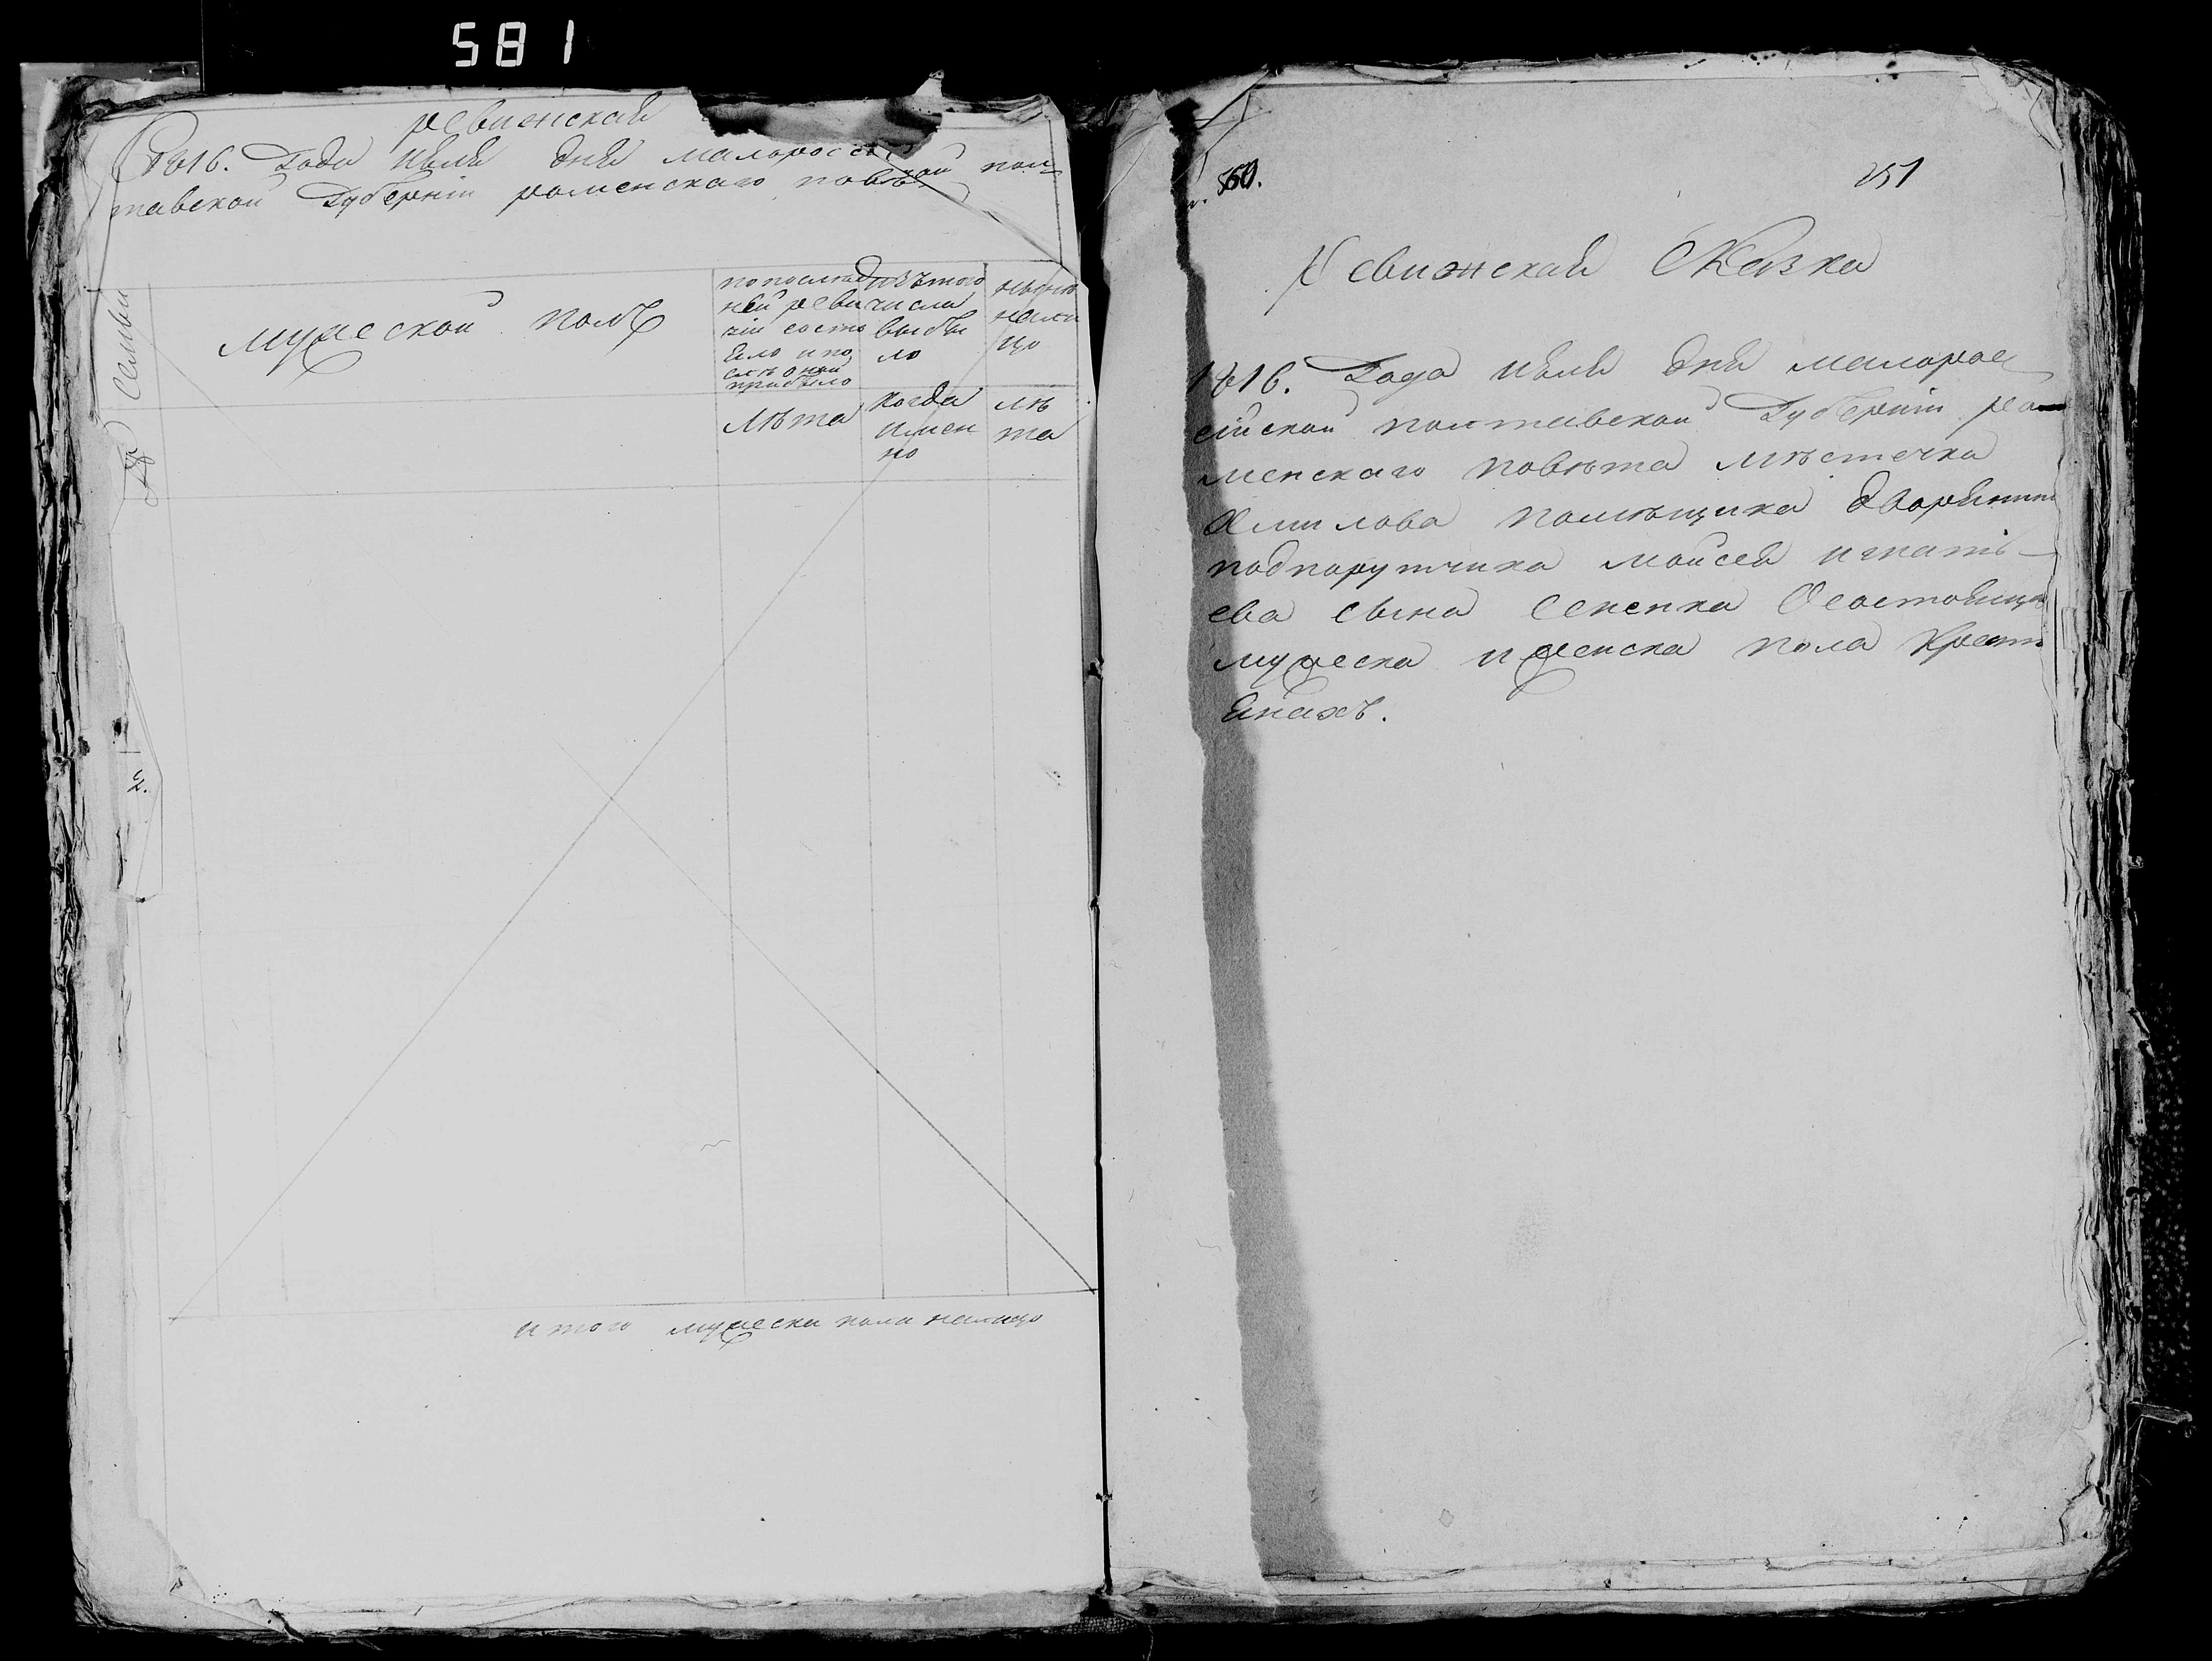 581
ревизская
1816. Года июля дня малоросс кой пол
тавской Губерніи роменскаго повѣ
№ Семьи
мужеской полъ
по послѣд
ней реви
зіи состо
яло и по
слѣ оной
прибыло
изъ того
числа
выбы
ло
нынѣ
нали
цо
Лѣта
когда
имен
но
лѣ
та
2.
итого мужеска пола налицо
560.
251
Ревизская Сказка
1816. Года июля дня малорос
сійской полтавской Губерніи ро
менскаго повѣта мѣстечка
Смилова помѣщика дворянина
подпорутчика мойсея игнать
ева сына Сененка О состоящихъ
мужеска и женска пола крестъ
янахъ.